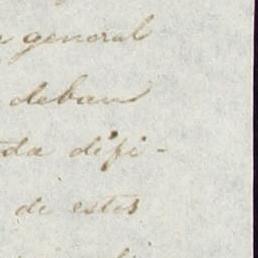 general
deban
da difi-
de estos